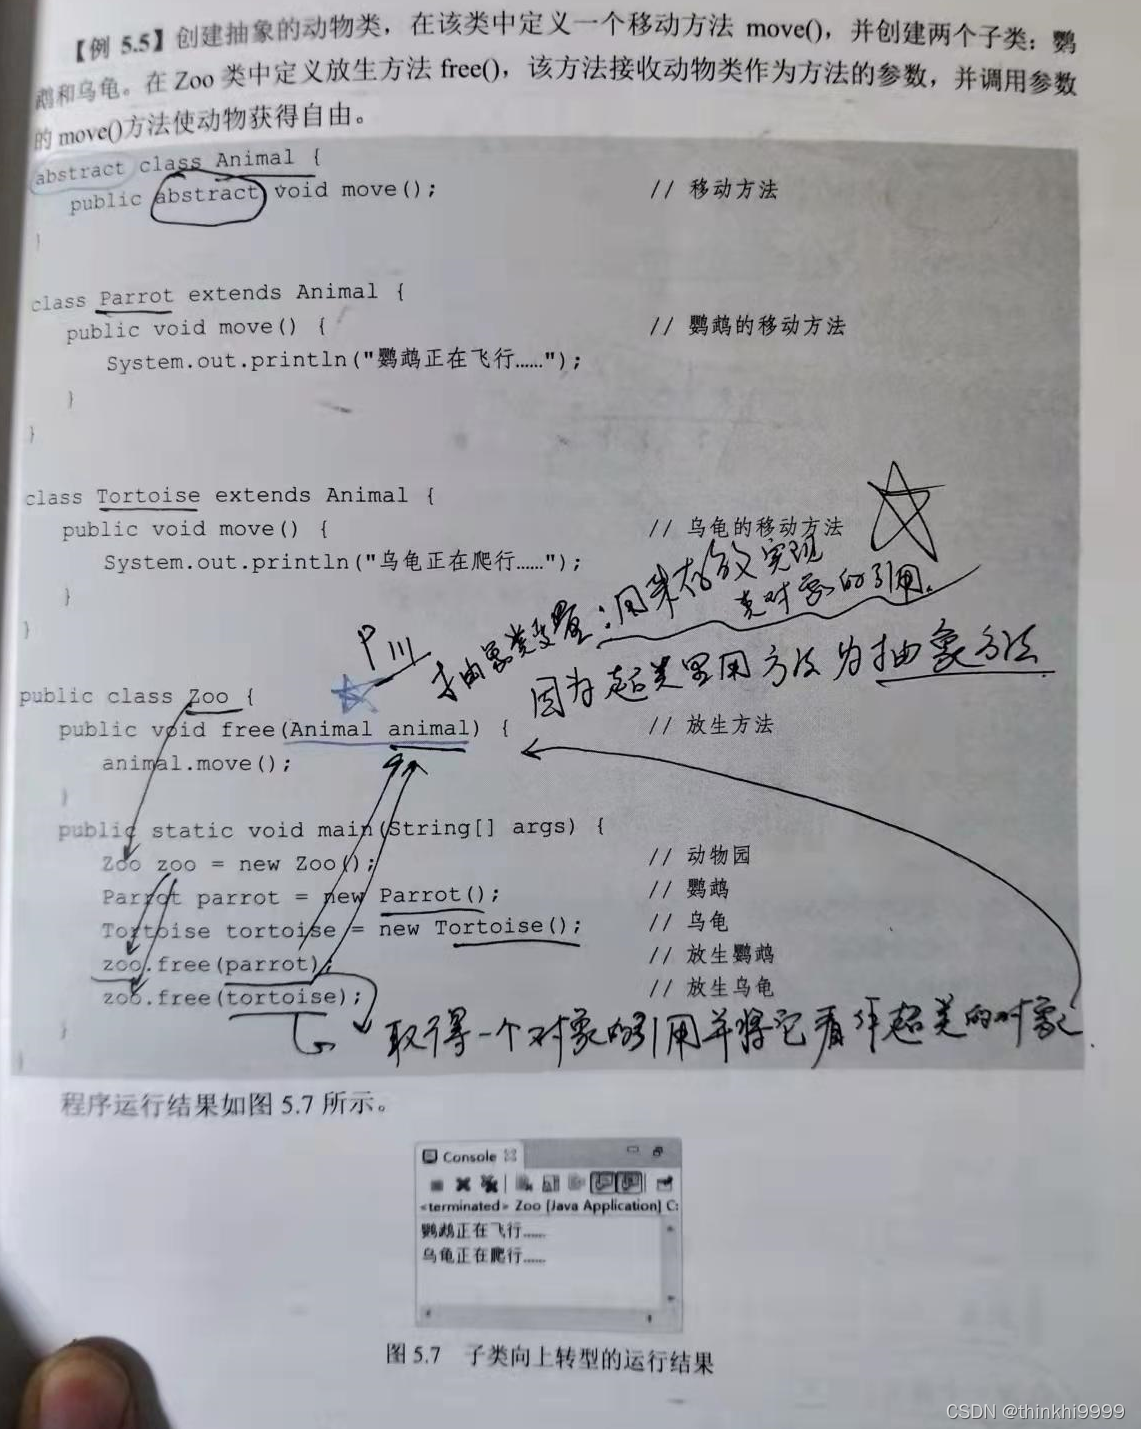 【例 5.5】创建抽象的动物类，在该类中定义一个移动方法 move()，并创建两个子类：鹦
鹉和乌龟。在 Zoo 类中定义放生方法 free()，该方法接收动物类作为方法的参数，并调用参数
的 move()方法使动物获得自由。
abstract class Animal {
public abstract void move(); // 移动方法
}
class Parrot extends Animal {
public void move() { // 鹦鹉的移动方法
System.out.println("鹦鹉正在飞行……");
}
}
class Tortoise extends Animal {
public void move() { // 乌龟的移动方法
System.out.println("乌龟正在爬行……");
}
}
P111
抽象类变量：用来存放实现
类对象的引用。
因为超类里用方法为抽象方法
public class Zoo {
public void free(Animal animal) { // 放生方法
animal.move();
}
public static void main(String[] args) {
Zoo zoo = new Zoo(); // 动物园
Parrot parrot = new Parrot(); // 鹦鹉
Tortoise tortoise = new Tortoise(); // 乌龟
zoo.free(parrot); // 放生鹦鹉
zoo.free(tortoise); // 放生乌龟
取得一个对象的引用并将它看作超类的对象
}
}
程序运行结果如图 5.7 所示。
Console
<terminated> Zoo [Java Application] C:
鹦鹉正在飞行……
乌龟正在爬行……
图 5.7 子类向上转型的运行结果
CSDN @thinkhi9999